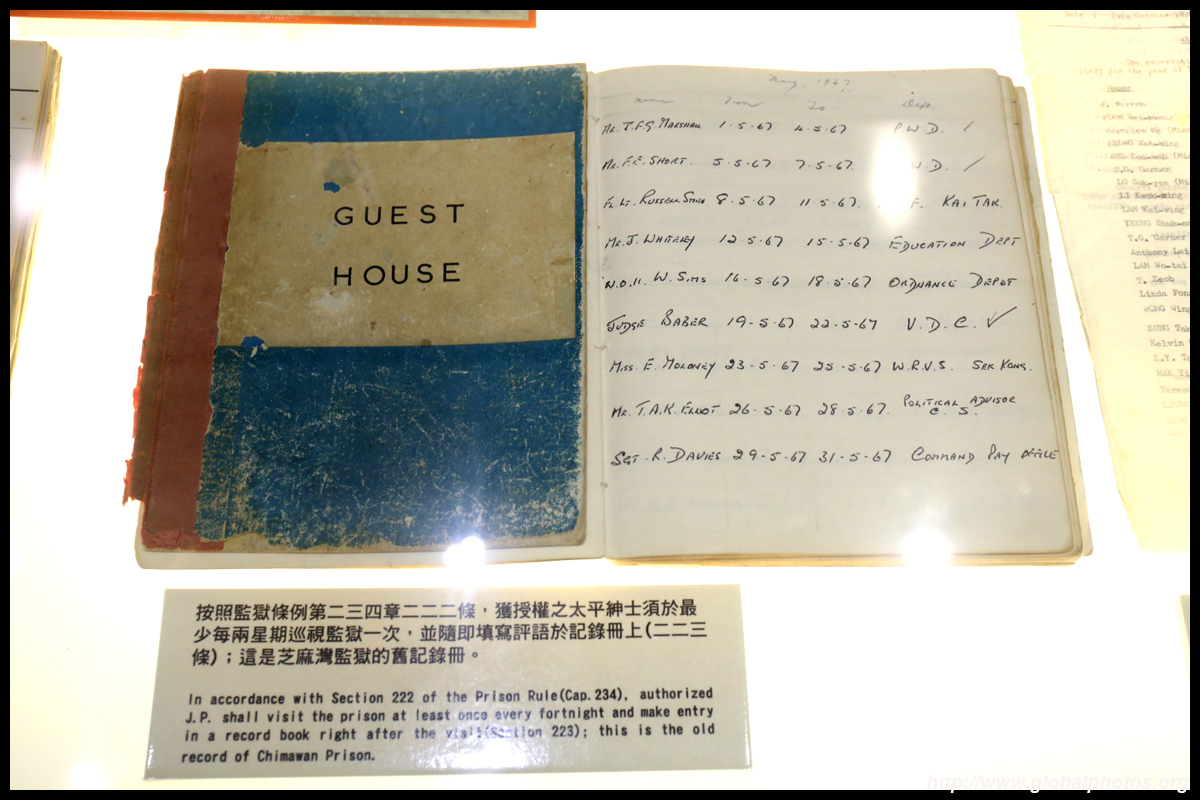 GUEST
HOUSE
May, 1967
name From To Dept.
Mr. T.F.G. MARSHALL 1-5-67 4-5-67 P.W.D. /
Mr. F.E. SHORT. 5-5-67 7-5-67. W.D. /
FL. LT. RUSSELL SMITH 8-5-67 11-5-67. F. KAI TAK.
Mr. J. WHITELEY 12-5-67 15-5-67 EDUCATION DEPT
W.O.II. W. SIMS 16-5-67 18-5-67 ORDNANCE DEPOT
JUDGE BABER 19-5-67 22-5-67. V.D.C. ✓
MISS. E. MOLONEY 23-5-67 25-5-67 W.R.V.S. SEK KONG.
Mr. T.A.K. ELLIOT 26-5-67 28-5-67. POLITICAL ADVISOR
C.S.
SGT. R. DAVIES 29-5-67 31-5-67 COMMAND PAY OFFICE
T.G. Garner
Anthony Lai
LAM Wo-tai
Linda Fon
WONG Wing
SUNG Tak
Kelvin
按照監獄條例第二三四章二二二條，獲授權之太平紳士須於最
少每兩星期巡視監獄一次，並隨即填寫評語於記錄冊上(二二三
條)；這是芝麻灣監獄的舊記錄冊。
In accordance with Section 222 of the Prison Rule(Cap.234), authorized
J.P. shall visit the prison at least once every fortnight and make entry
in a record book right after the visit(Section 223); this is the old
record of Chimawan Prison.
http://www.globalphotos.org